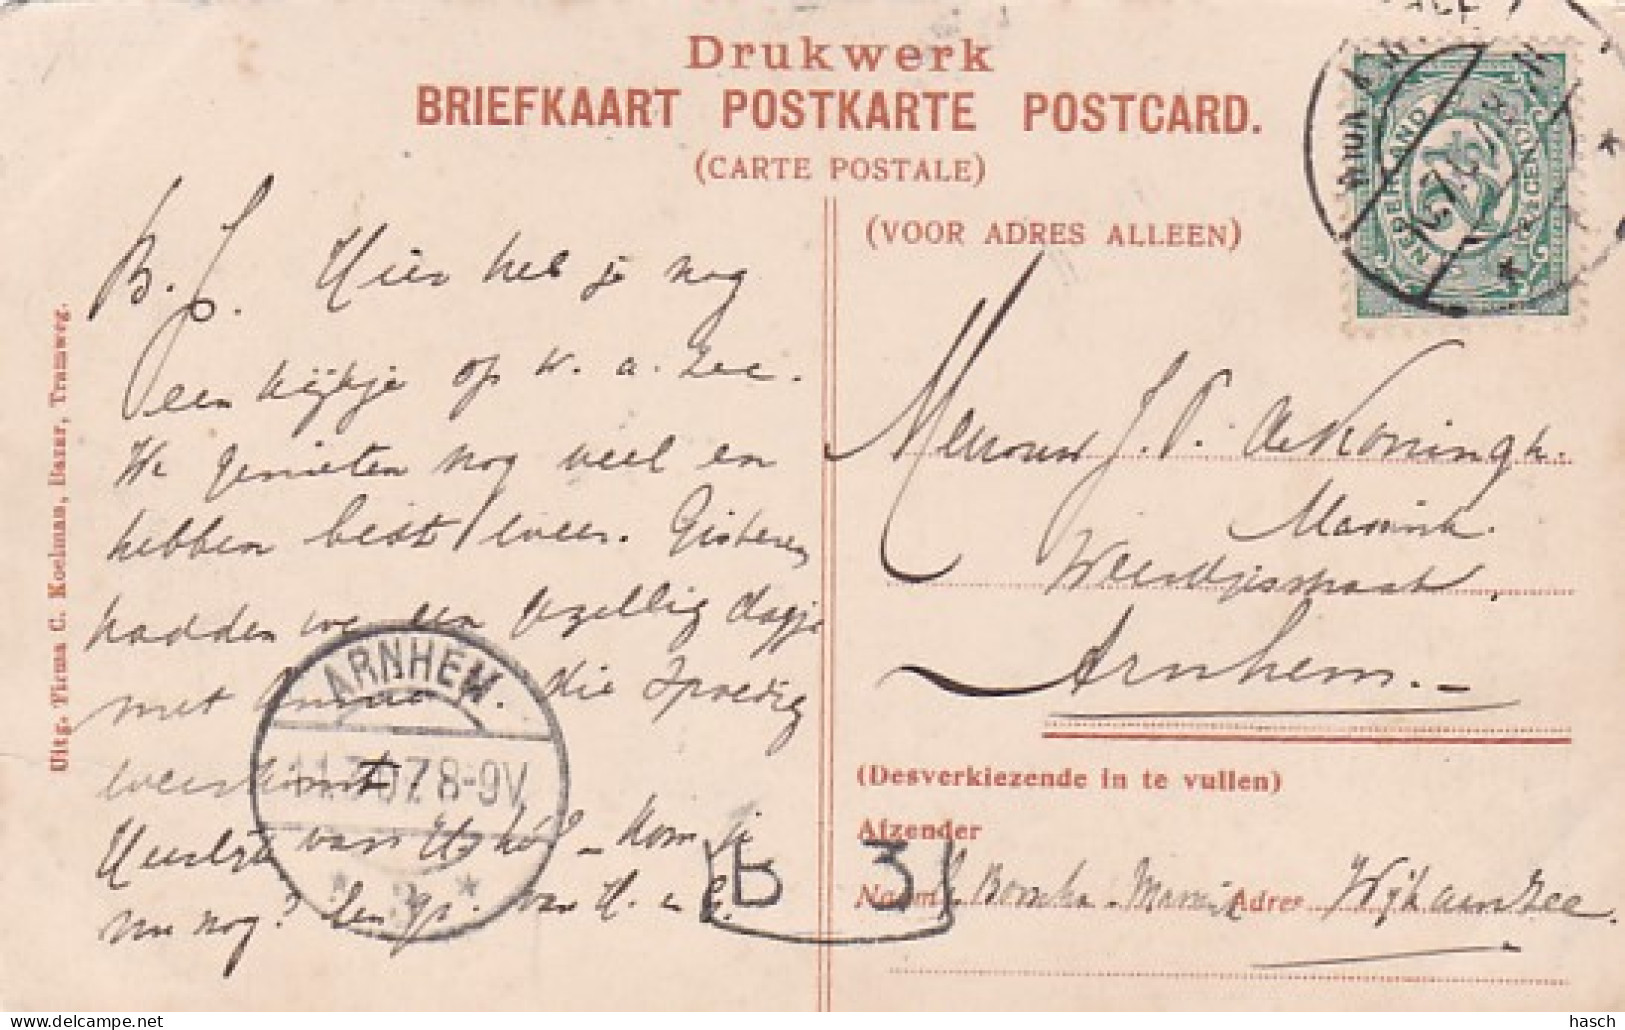 Drukwerk
BRIEFKAART POSTKARTE POSTCARD.
(CARTE POSTALE)
(VOOR ADRES ALLEEN)
NEDERLAND
2½ CENT
B. J. Hier heb je nog
een kijkje op W. a. Zee.
We genieten nog veel en
hebben best weer. Gisteren
hadden we een gezellig dagje
met die spoedig
weerkomt!
van - Kom je
nu nog? van H. en G.
Mevrouw J. P. de Koningh.
Mannink.
Weerdjesstraat.
Arnhem.-
ARNHEM.
11.7.07.8-9V
* 3 *
(Desverkiezende in te vullen)
Afzender
Naam Adres Wijk aan Zee.
B 3
Uitg. Firma C. Koelman, Bazar, Tramweg.
hasch